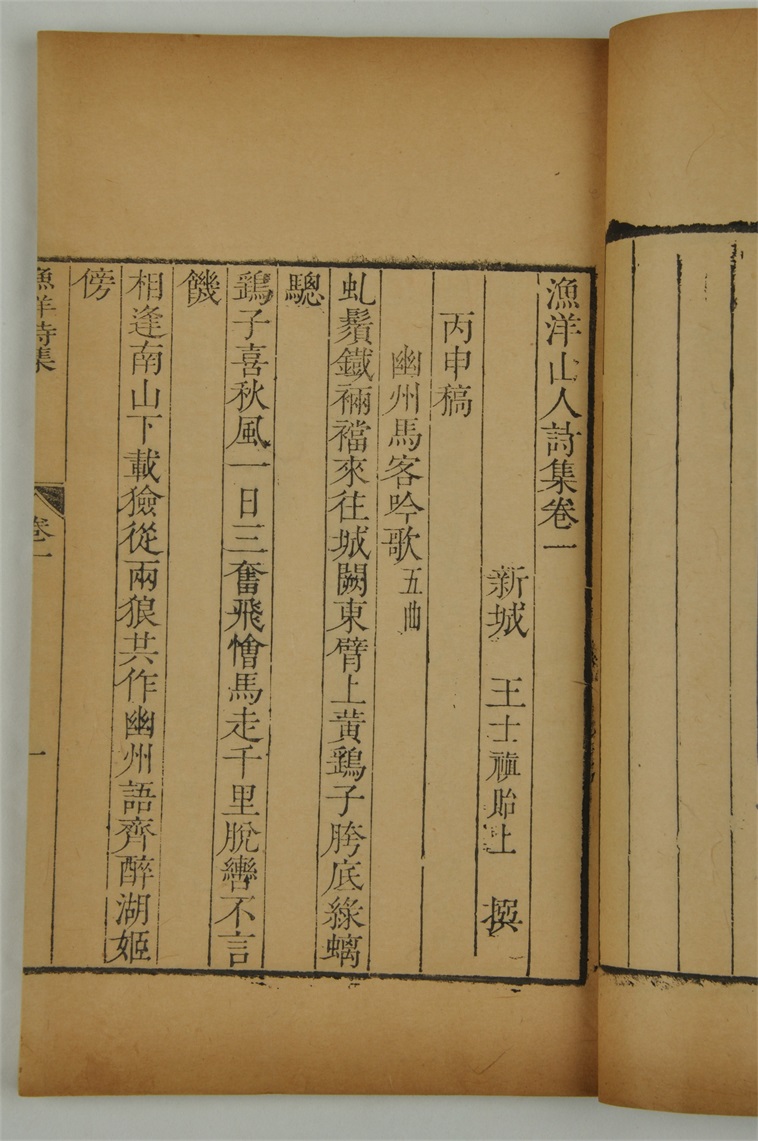 漁洋山人詩集卷一
新城　王士禛貽上　撰
丙申稿
幽州馬客吟歌五曲
虬鬚鐵裲襠來往城闕東臂上黃鷂子胯底綠螭
驄
鷂子喜秋風一日三奮飛憎馬走千里脫轡不言
饑
相逢南山下載獫從兩狼共作幽州語齊醉湖姬
傍
漁洋詩集　卷一　一